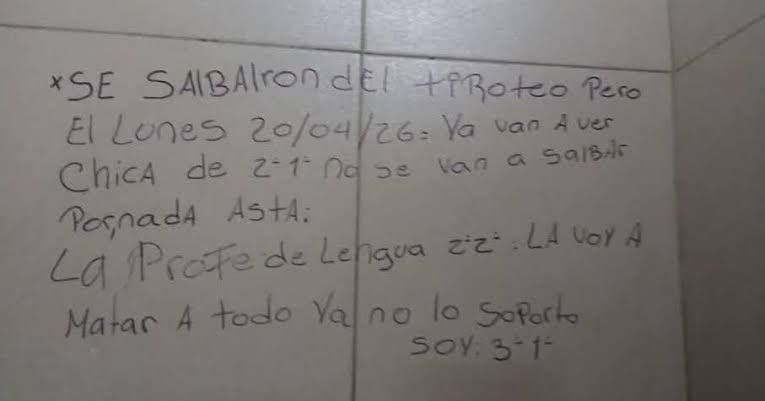 *SE SAlBAlron dEl +iRoteo Pero
El Lunes 20/04/26: Ya van A ver
ChicA de 2-1- no se van a SalBAr
Por nadA AstA:
La Profe de Lengua 2-2-. LA voy A
Matar A todo Ya no lo SoPorto
SOY: 3-1-